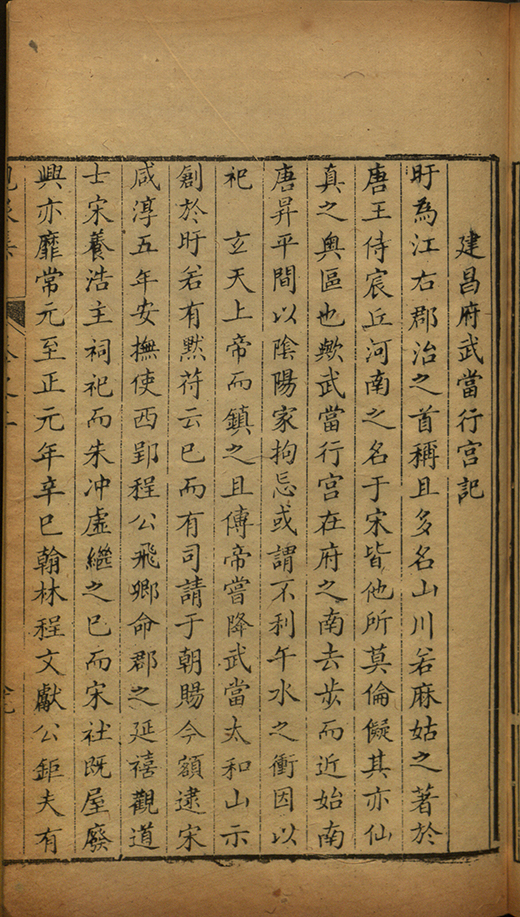 建昌府武當行宮記
盱為江右郡治之首稱且多名山川若麻姑之著於
唐王侍宸丘河南之名于宋皆他所莫倫儗其亦仙
真之奧區也歟武當行宮在府之南去步而近始南
唐昇平間以陰陽家拘忌或謂不利午水之衝因以
祀　玄天上帝而鎮之且傳帝嘗降武當太和山示
創於盱若有默苻云巳而有司請于朝賜今額逮宋
咸淳五年安撫使西郢程公飛卿命郡之延禧觀道
士宋養浩主祠祀而朱冲虛繼之巳而宋社既屋廢
興亦靡常元至正元年辛巳翰林程文獻公鉅夫有